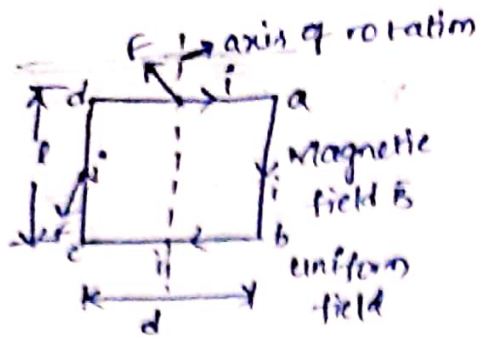 F axis of rotation
d i a
l i Magnetic
i field B
F
c i b uniform
d field